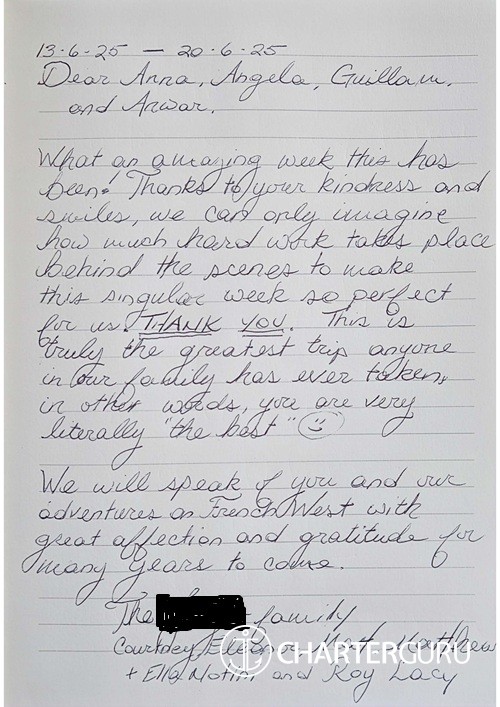 13·6·25 — 20·6·25
Dear Anna, Angela, Guillam,
and Anwar,
What an amazing week this has
been! Thanks to your kindness and
smiles, we can only imagine
how much hard work takes place
behind the scenes to make
this singular week so perfect
for us. THANK YOU. This is
truly the greatest trip anyone
in our family has ever taken,
in other words, you are very
literally "the best"
We will speak of you and our
adventures on French West with
great affection and gratitude for
many years to come.
The family
Courtney, Eleanor, Matthew
+ Ella and Roy Lacy
CHARTERGURU